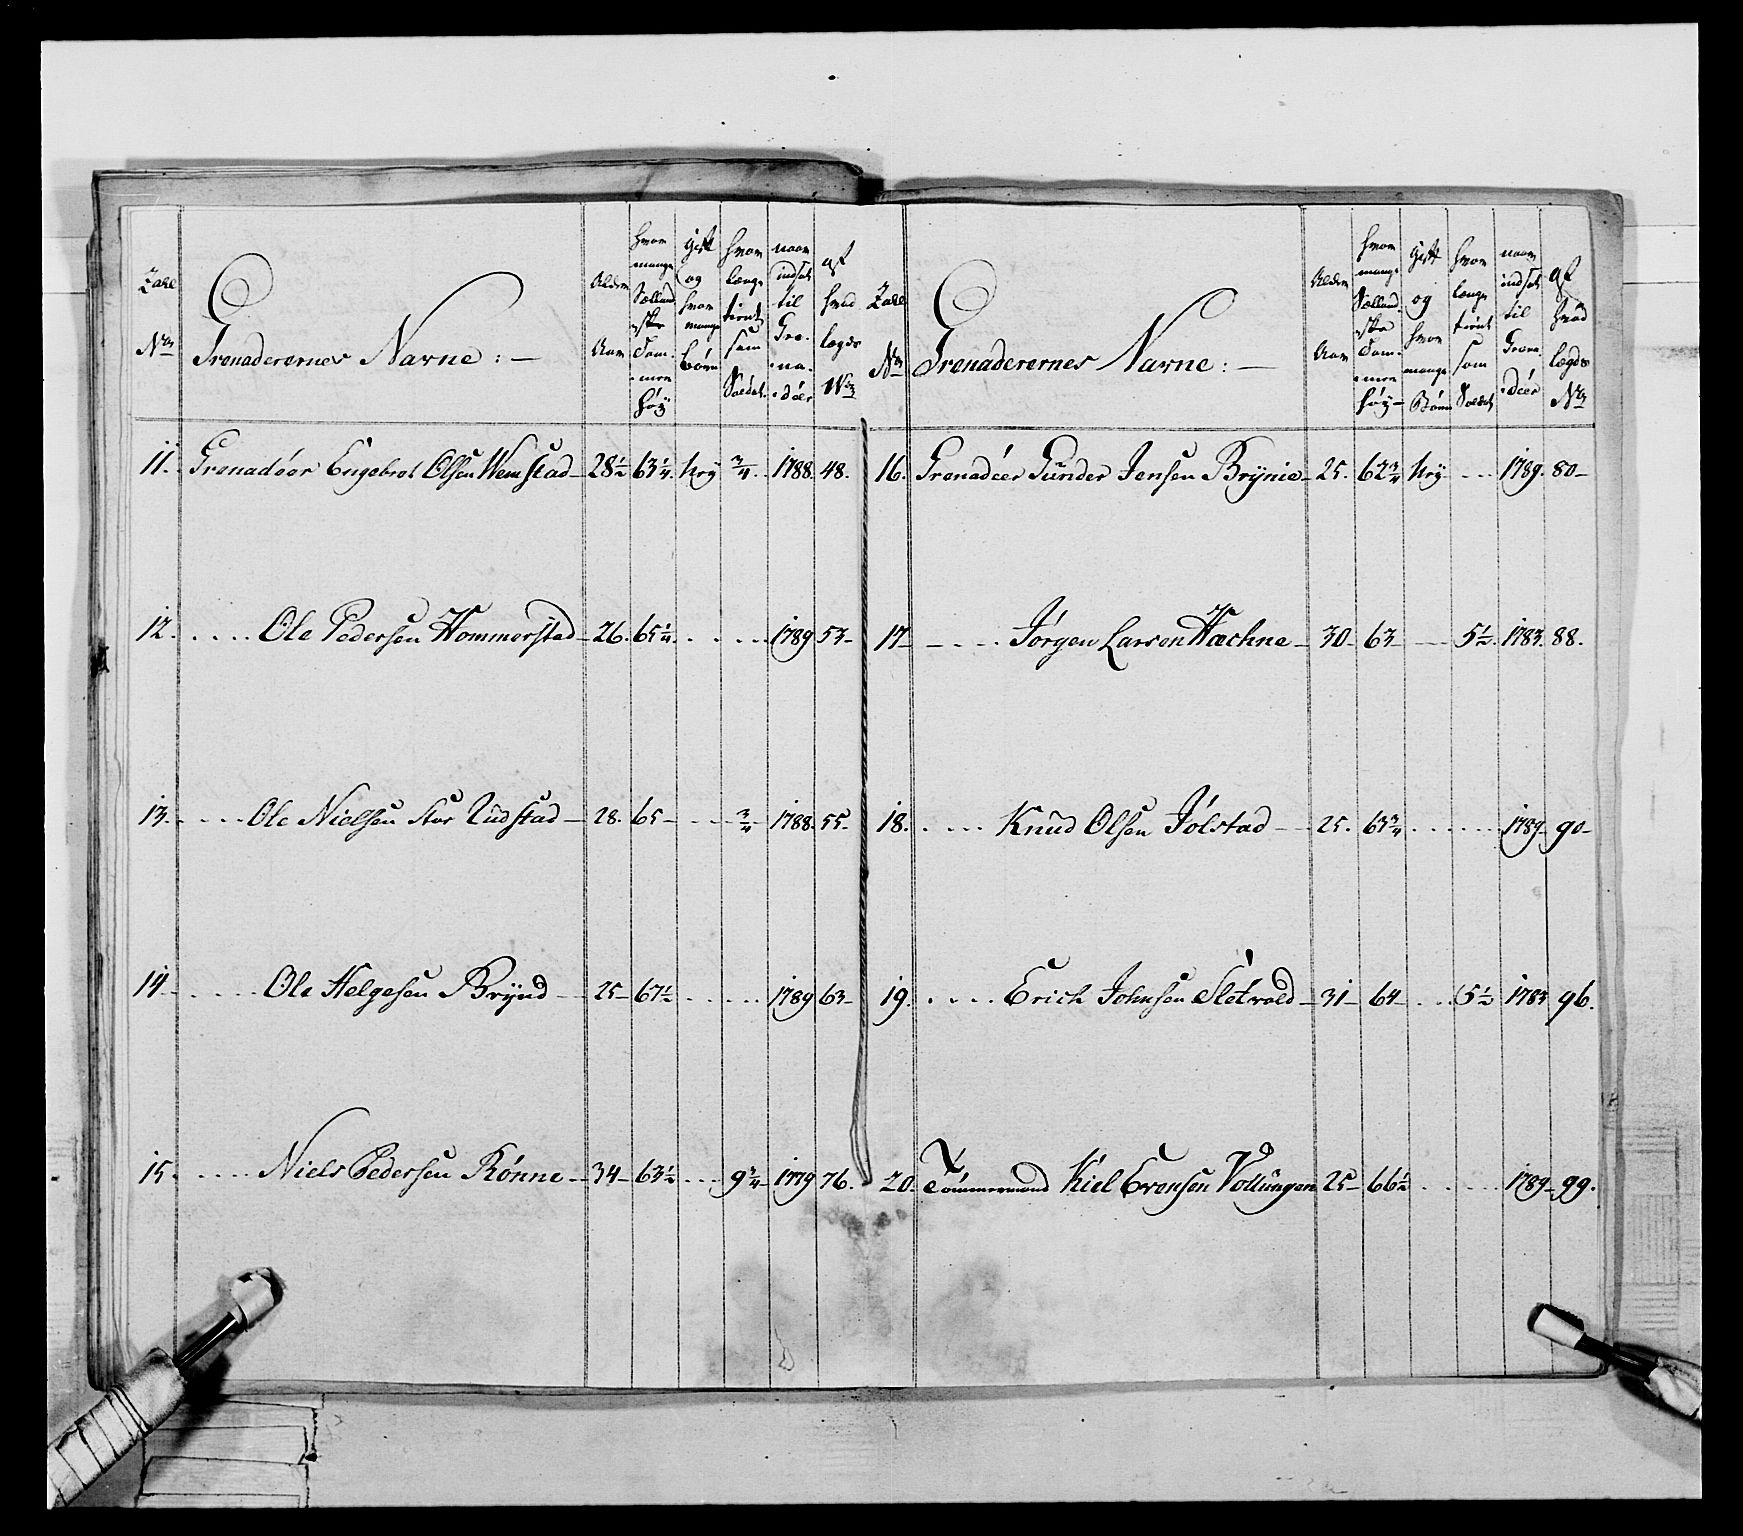 Tall No Grenaderernes Navne : — Alder Aar hvor mange Sællandske Tommer høy gift og hvor mange børn hvor længe tient som Soldat naar indsat til Grenadéer af hvad lægds No
11. Grenadéer Engebret Olsen Wemstad — 28½ 63¼ kry ¾. 1788. 48.
12. . . . . Ole Pedersen Hommerstad — 26. 65¼ . . . . 1789 53 —
13. . . . . Ole Nielsen Stor Rudstad — 28. 65 — . . . ¾ 1788. 55 —
14 . . . . . Ole Helgesen Brÿnd — 25 — 67½ . . . . 1789 63 —
15. . . . . Niels Pedersen Rönne — 34 — 63½ . . . 9¾ — 1779 76.
Tall No Grenaderernes Navne : — Alder Aar hvor mange Sællandske Tommer høy — gift og hvor mange Börn hvor længe tient som Soldat naar indsat til Grenadéer af hvad lægds No
16. Grenadéer Gunder Jensen Brÿnie — 25. 62¾ kry . . . 1789. 80 —
17 — . . . . Jörgen Larsen Hæchne — 30 — 63 — . . . 5½. 1783. 88.
18. . . . . Knud Olsen Jölstad — 25. 63¾ . . . . 1789 — 90 —
19. . . . . Erich Johnsen Sletvold — 31 — 64 — . . . 5½ 1783 96.
20. Tömmermand Kiel Evensen Vollungen 25 — 66½ . . . . 1789 — 99.